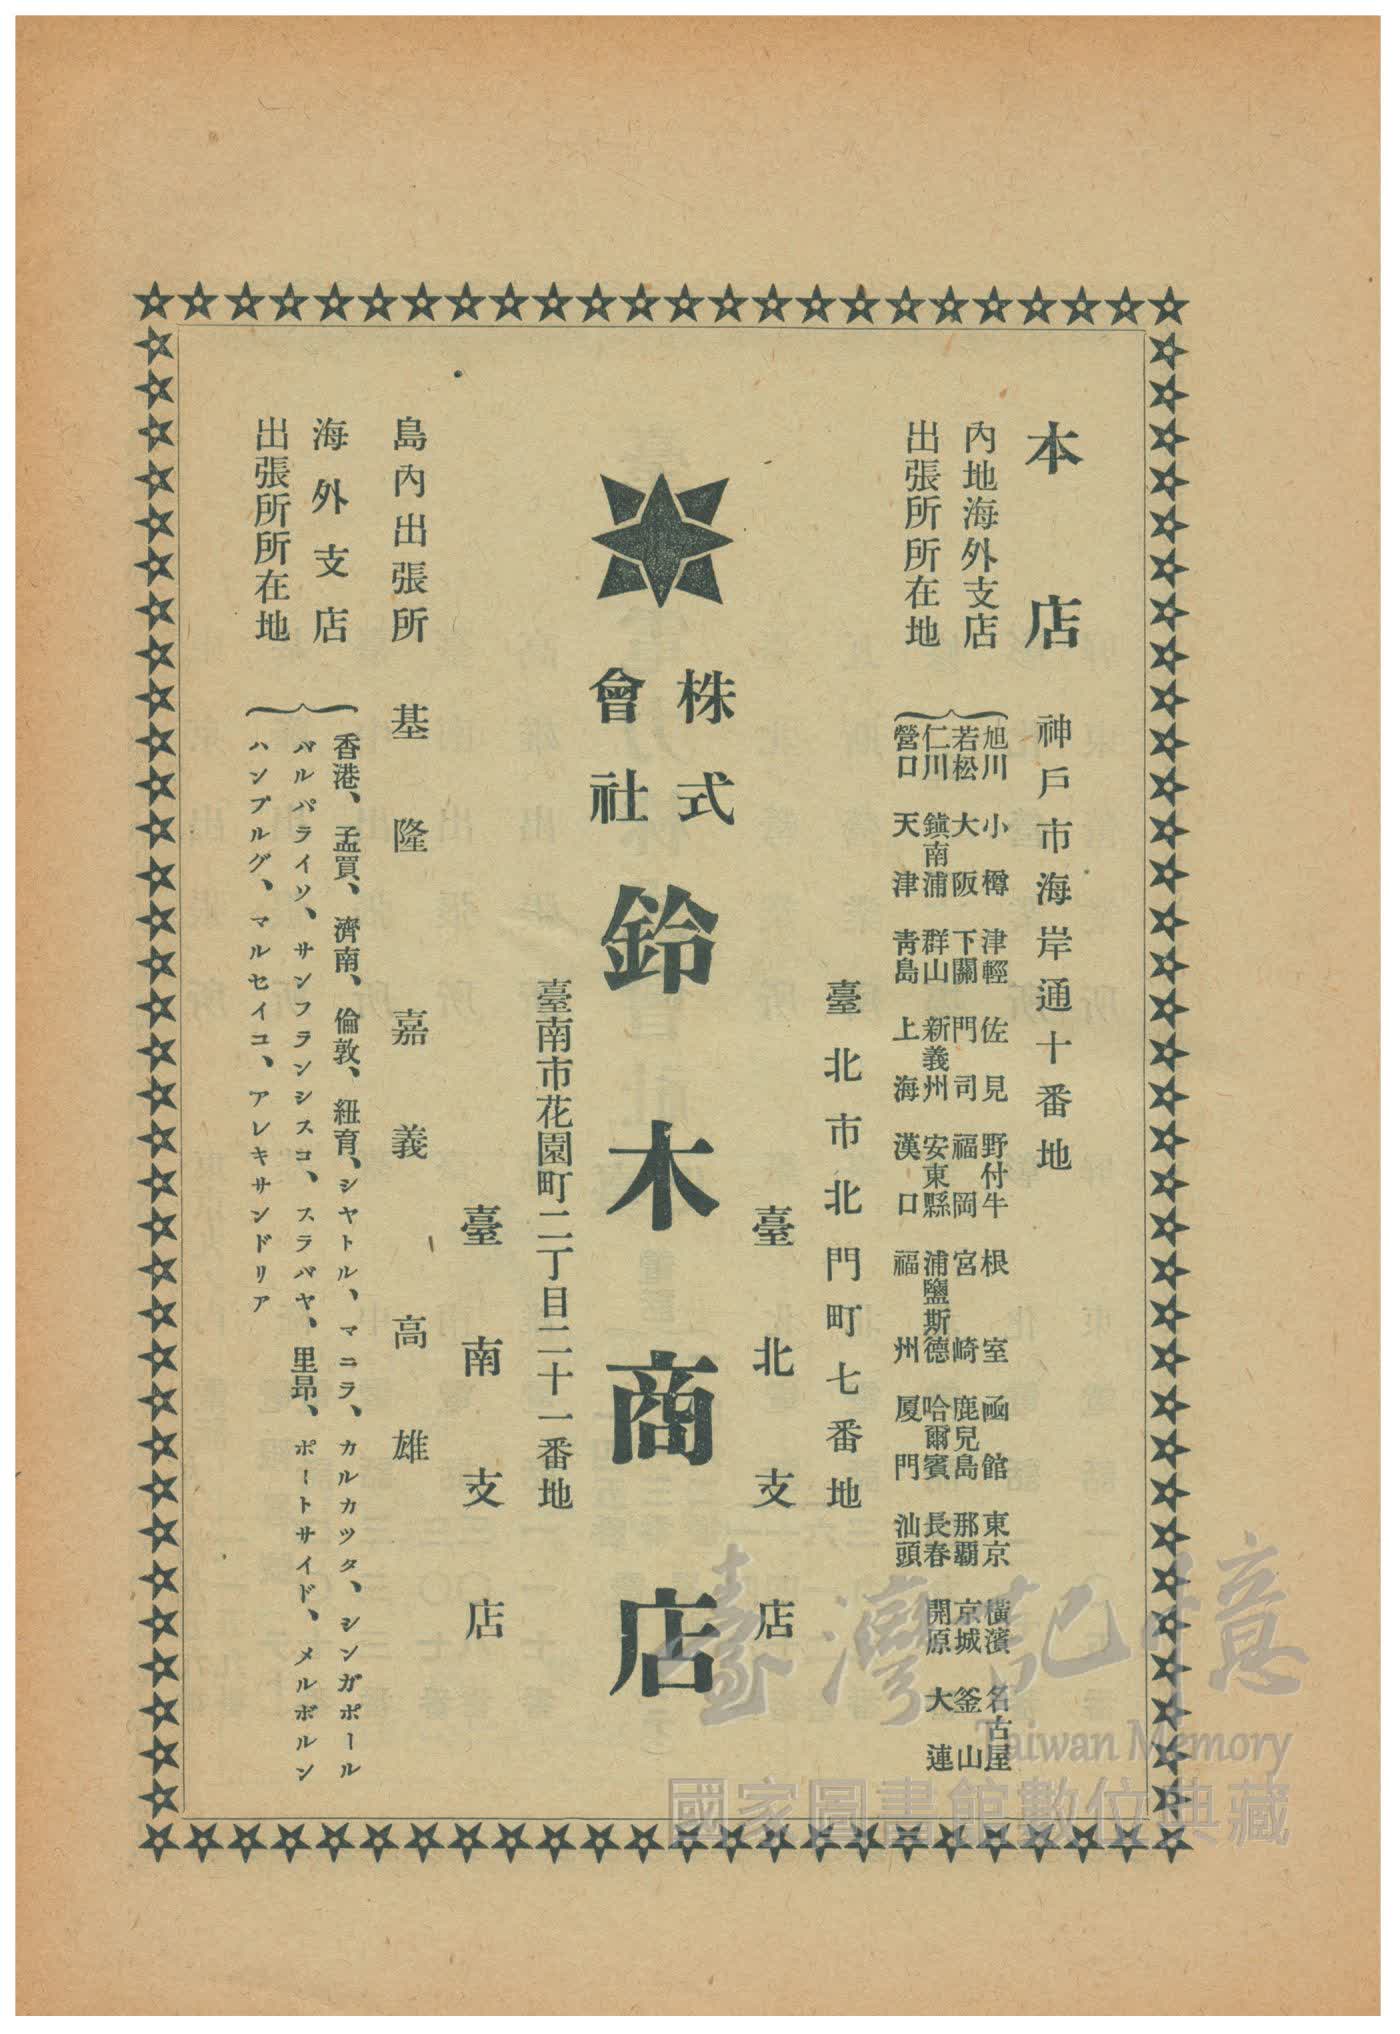 本店 神戶市海岸通十番地
內地海外支店
出張所所在地
旭川 小樽 津輕 佐見 野付牛 根室 函館 東京 橫濱 名古屋
若松 大阪 下關 門司 福岡 宮崎 鹿兒島 那覇 京城 釜山
仁川 鎭南浦 群山 新義州 安東縣 浦鹽斯德 哈爾賓 長春 開原 大連
營口 天津 靑島 上海 漢口 福州 厦門 汕頭
臺北市北門町七番地
臺北支店
株式
會社
鈴木商店
臺南市花園町二丁目二十一番地
臺南支店
島內出張所 基隆 嘉義 高雄
海外支店
出張所所在地
香港、孟買、濟南、倫敦、紐育、シヤトル、マニラ、カルカツタ、シンガポール
バルパライソ、サンフランシスコ、スラバヤ、里昂、ポートサイド、メルボルン
ハンブルグ、マルセイユ、アレキサンドリア
臺灣記憶
Taiwan Memory
國家圖書館數位典藏